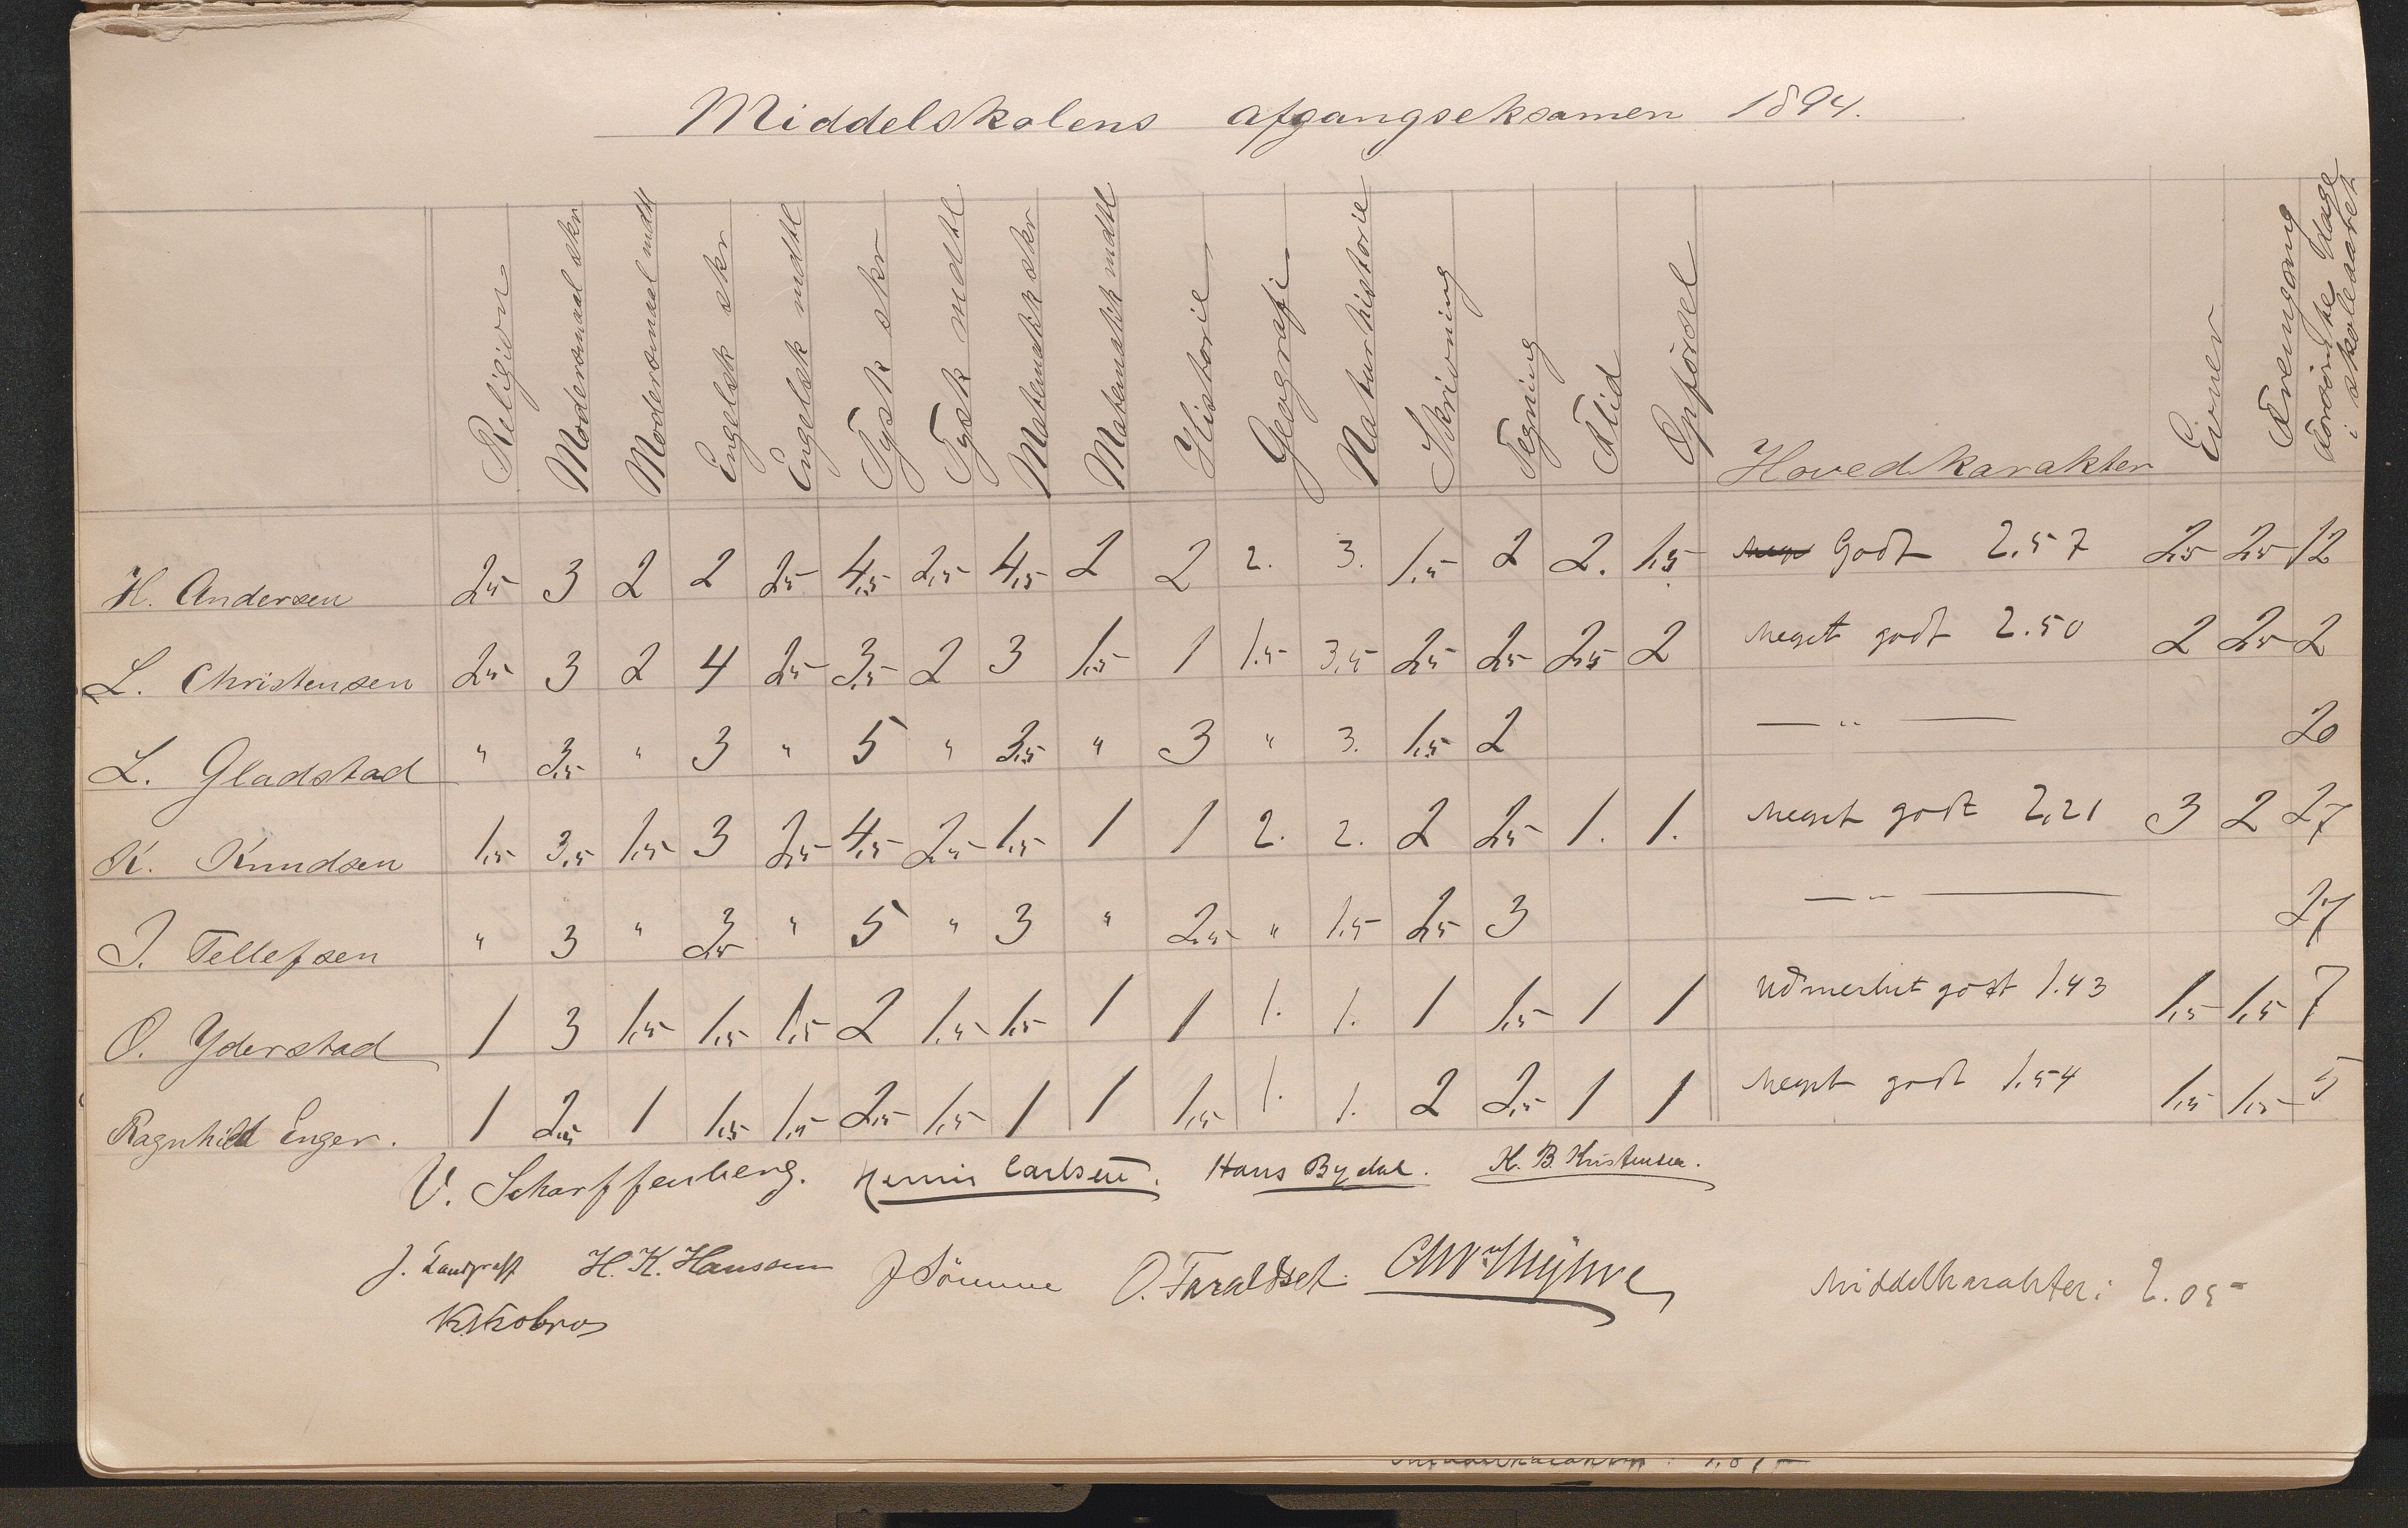 Middelskolens afgangseksamen 1894.
Religion Modersmaal skr Modersmaal mdtl Engelsk skr Engelsk mdtl Tysk skr Tysk mdtl Matematik skr Matematik mdtl Historie Geografi Naturhistorie Skrivning Tegning Flid Opførsel Hovedkarakter Evner Fremgang Forsømte Dage i skoleaaret
H. Andersen 2,5 3 2 2 2,5 4,5 2,5 4,5 2 2 2. 3. 1,5 2 2. 1,5 Godt 2.57 2,5 2,5 12
L. Christensen 2,5 3 2 4 2,5 3,5 2 3 1,5 1 1.5 3,5 2,5 2,5 2,5 2 Meget godt 2.50 2 2,5 2
L. Gladstad " 3,5 " 3 " 5 " 3,5 " 3 " 3. 1,5 2 — " — 20
K. Knudsen 1,5 3,5 1,5 3 2,5 4,5 2,5 1,5 1 1 2. 2. 2 2,5 1. 1. Meget godt 2,21 3 2 27
J. Tellefsen " 3 " 3,5 " 5 " 3 " 2,5 " 1.5 2,5 3 — " — 27
O. Yderstad 1 3 1,5 1,5 1,5 2 1,5 1,5 1 1 1. 1. 1 1,5 1 1 Udmerket godt 1.43 1,5 1,5 7
Ragnhild Enger. 1 2,5 1 1,5 1,5 2,5 1,5 1 1 1,5 1. 1. 2 2,5 1 1 Meget godt 1.54 1,5 1,5 5
V. Scharffenberg. Carlsen. Hans Bydal. K. B. Kristensen.
J. Landgraff H. K. Hanssen J Sömme O. Taraldset.
Middelkarakter: 2.05